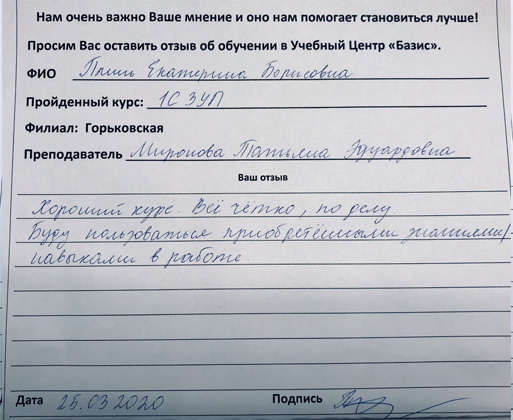 Нам очень важно Ваше мнение и оно нам помогает становиться лучше!
Просим Вас оставить отзыв об обучении в Учебный Центр «Базис».
ФИО Екатерина Борисовна
Пройденный курс: 1С ЗУП
Филиал: Горьковская
Преподаватель Миронова Татьяна Эдуардовна
Ваш отзыв
Хороший курс. Всё чётко, по делу
Буду пользоваться приобретёнными знаниями/
навыками в работе.
Дата 25.03.2020 Подпись